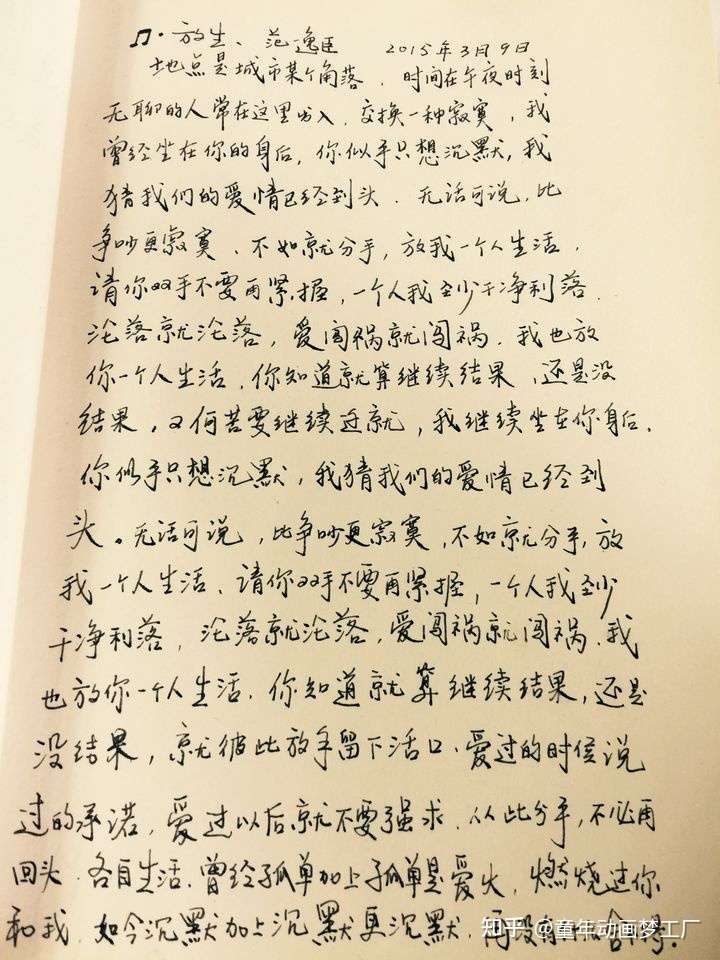 ♫·放生、范逸臣 2015年3月9日
地点是城市某个角落．时间在午夜时刻
无聊的人常在这里出入．交换一种寂寞，我
曾经坐在你的身后，你似乎只想沉默，我
猜我们的爱情已经到头．无话可说，比
争吵更寂寞、不如就分手，放我一个人生活．
请你双手不要再紧握，一个人我至少干净利落．
沦落就沦落，爱闯祸就闯祸．我也放
你一个人生活．你知道就算继续结果，还是没
结果，又何苦要继续迁就，我继续坐在你身后．
你似乎只想沉默，我猜我们的爱情已经到
头。无话可说，比争吵更寂寞，不如就分手，放
我一个人生活、请你双手不要再紧握，一个人我至少
干净利落，沦落就沦落，爱闯祸就闯祸．我
也放你一个人生活．你知道就算继续结果，还是
没结果，就彼此放手留下活口．爱过的时候说
过的承诺，爱过以后就不要强求．从此分手，不必再
回头．各自生活．曾经孤单加上孤单是爱火，燃烧过你
和我．如今沉默加上沉默更沉默．再没有
知乎 @童年动画梦工厂